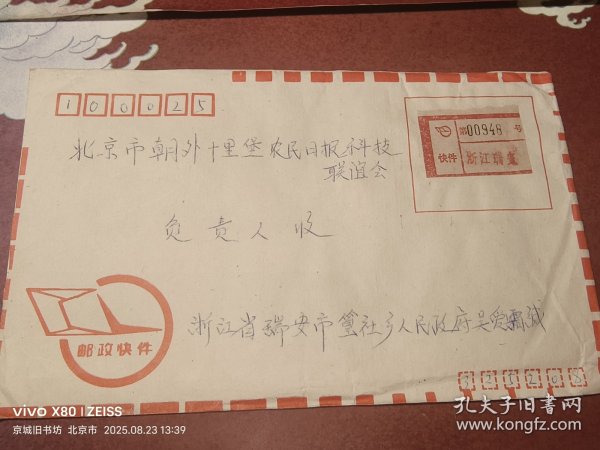 100025
第00948号
快件 浙江瑞安
北京市朝外十里堡农民日报科技
联谊会
负责人收
浙江省瑞安市篁社乡人民政府吴爱
邮政快件
325208
vivo X80 | ZEISS
京城旧书坊 北京市 2025.08.23 13:39
孔夫子旧书网
www.kongfz.com